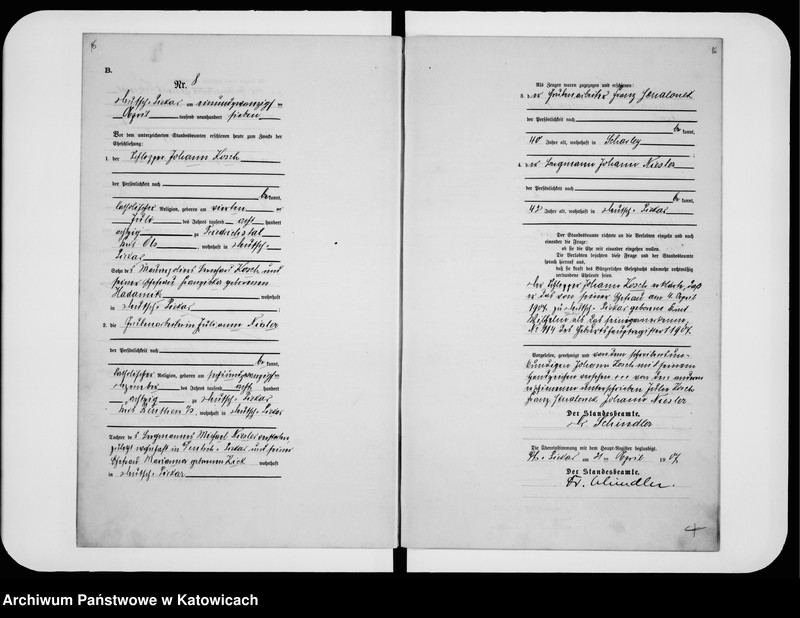 B.
Nr. 8
Deutsch-Piekar am einundzwanzigsten
April tausend neunhundert sieben
Vor dem unterzeichneten Standesbeamten erschienen heute zum Zwecke der
Eheschließung:
1. der Schlepper Johann Kosch
der Persönlichkeit nach
bekannt,
katholischer Religion, geboren am vierten
Juli des Jahres tausend acht hundert
achtzig zu Friedrichstal
, wohnhaft in Deutsch-
Piekar
Sohn des Kosch und
seiner Ehefrau Franziska geborenen
Hadamik wohnhaft
in Deutsch-Piekar
2. die Grubenarbeiterin Julianna Niesler
der Persönlichkeit nach
bekannt,
katholischer Religion, geboren am
Dezember des Jahres tausend acht hundert
achtzig zu Deutsch-Piekar
Beuthen , wohnhaft in Deutsch-Piekar
Tochter des Bergmannes Michael Niesler verstorben,
zuletzt wohnhaft in Deutsch-Piekar und seiner
Ehefrau Marianna geborenen wohnhaft
in Deutsch-Piekar
Als Zeugen waren zugezogen und erschienen:
3. der Grubenarbeiter Franz
der Persönlichkeit nach
bekannt,
40 Jahre alt, wohnhaft in Scharley
4. der Bergmann Johann Niesler
der Persönlichkeit nach
bekannt,
42 Jahre alt, wohnhaft in Deutsch-Piekar
Der Standesbeamte richtete an die Verlobten einzeln und nach
einander die Frage:
ob sie die Ehe mit einander eingehen wollen.
Die Verlobten bejahten diese Frage und der Standesbeamte
sprach hierauf aus,
daß sie kraft des Bürgerlichen Gesetzbuchs nunmehr rechtmäßig
verbundene Eheleute seien.
Der Schlepper Johann Kosch erklärte, daß
er das von seiner Ehefrau am 4. April
1907 zu Deutsch-Piekar geborene Kind
als das seinige anerkenne.
Nr. 414 des Geburtshauptregisters 1907.
Vorgelesen, genehmigt und von dem schreibensun-
kundigen Johann Kosch mit seinem
Handzeichen versehen von den anderen
Erschienenen unterschrieben Kosch
Franz Johann Niesler
Der Standesbeamte.
Schindler
Die Übereinstimmung mit dem Haupt-Register beglaubigt.
Piekar am 21 ten April 1907
Der Standesbeamte.
Schindler.
Archiwum Państwowe w Katowicach